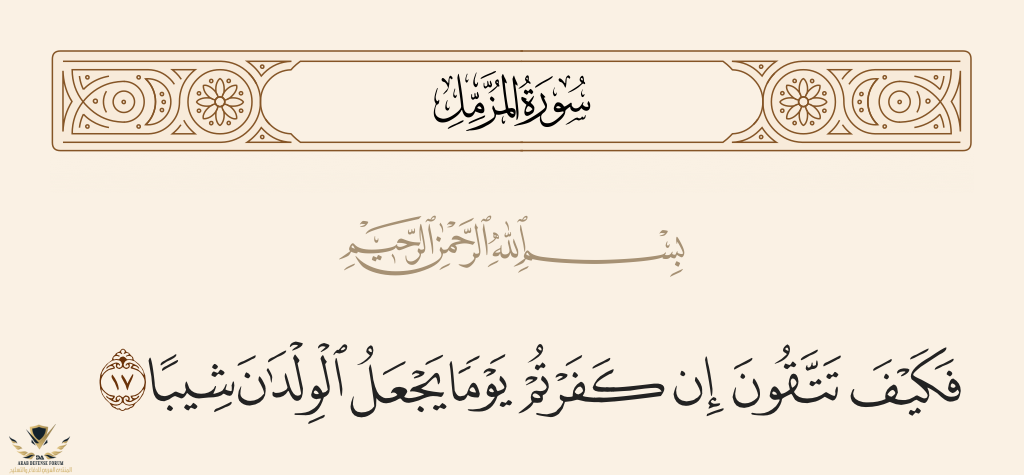 سُورَةُ المُزَّمِّلِ
بِسْمِ ٱللَّهِ ٱلرَّحْمَٰنِ ٱلرَّحِيمِ
فَكَيْفَ تَتَّقُونَ إِن كَفَرْتُمْ يَوْمًا يَجْعَلُ ٱلْوِلْدَٰنَ شِيبًا ١٧
DA
ARAB DEFENSE FORUM
المنتدى العربي للدفاع والتسليح